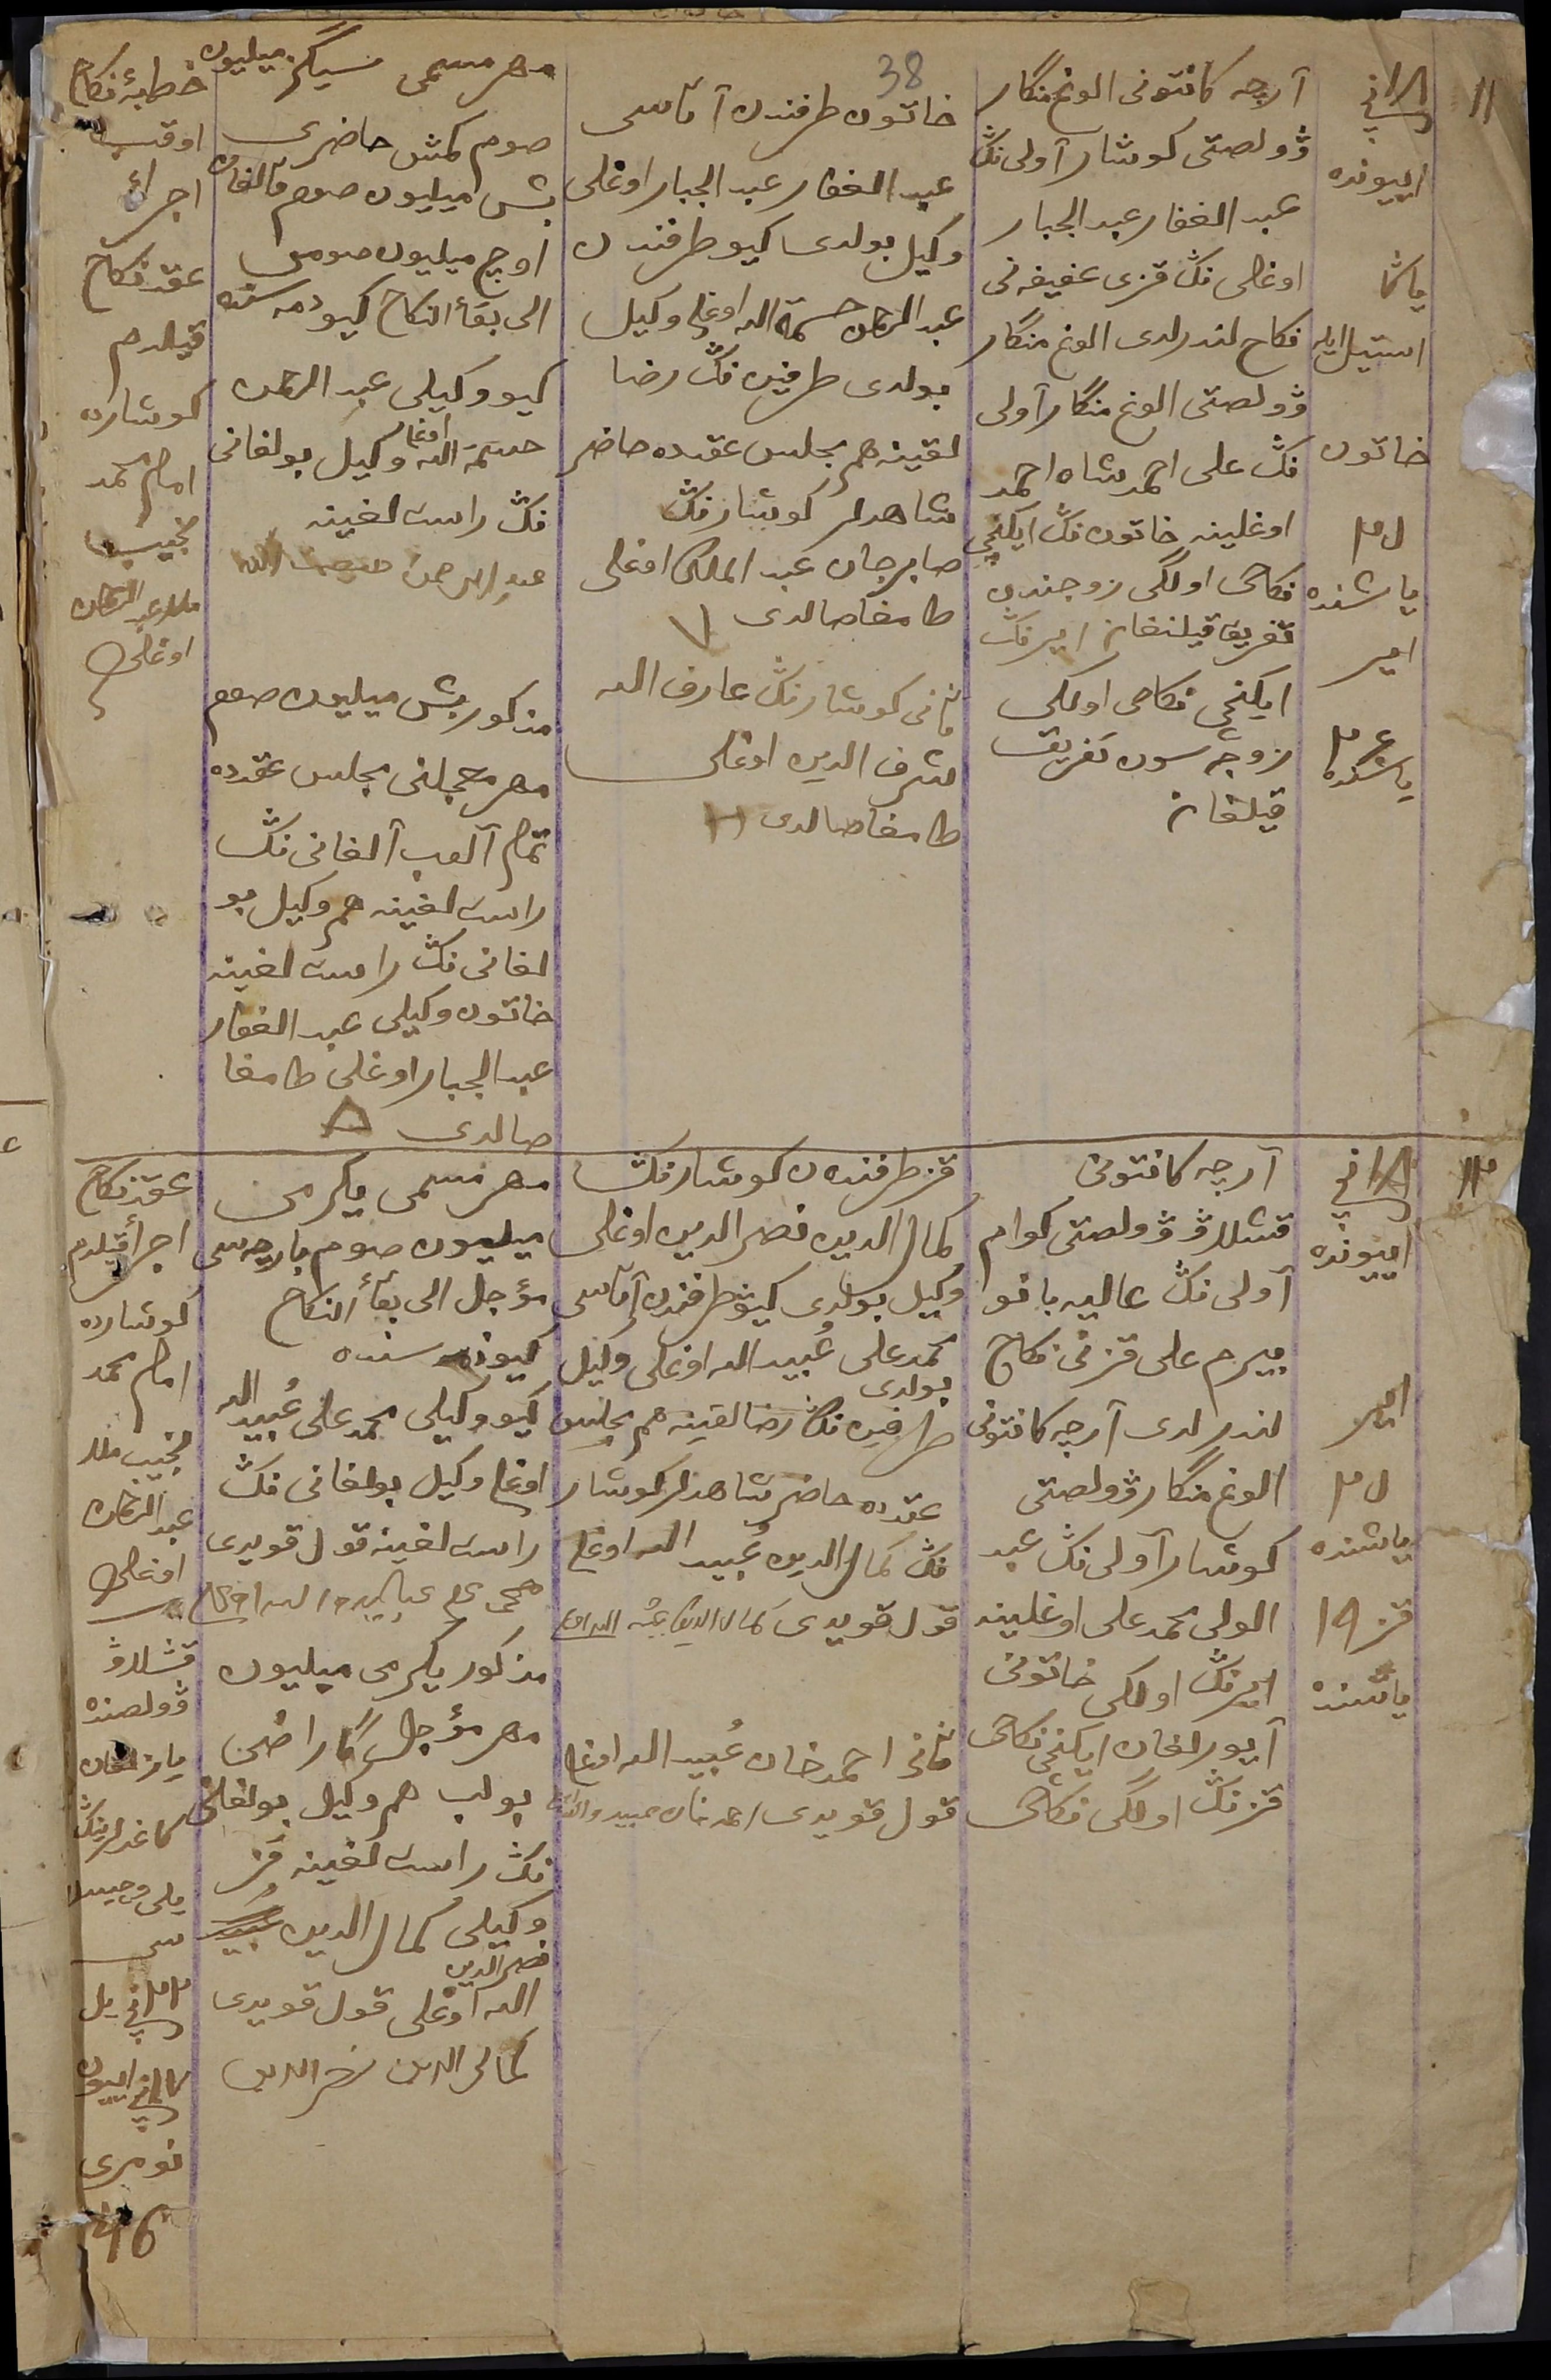 38
١١
١٨ نچی
اییونده
یاڭا
استیل ایله
خاتون
٣٥
یاشنده
ایر
٣٤
یاشنده
آرچه کانتونی الوغ منگار
ڤولصتی کوشار آولی نڭ
عبد الغفار عبد الجبار
اوغلی نڭ قزی عفیفه نی
نکاح لندرلدی الوغ منگار
ڤولصتی الوغ منگار آولی
نڭ علی احمد شاه احمد
اوغلینه خاتون نڭ ایکنچی
نکاحی اولگی زوجندن
تفریق قیلنغان ایر نڭ
ایکنچی نکاحی اولگی
زوجه سون تفریق
قیلغان
خاتون طرفندن آتاسی
عبد الغفار عبد الجبار اوغلی
وکیل بولدی کیو طرفندن
عبد الرحمان حسمة الله اوغلی وکیل
بولدی طرفین نڭ رضا
لقینه هم مجلس عقده حاضر
شاهدلر کوشار نڭ
صابرجان عبد الملک اوغلی
طامغا صالدی
ثانی کوشار نڭ عارف الله
شرف الدین اوغلی
طامغا صالدی
مهر مسمی سیگز میلیون
صوم کمش حاضری
بش میلیون صوم قالغان
اوچ میلیون صومی
الی بقأ النکاح کیو ذمه سنده
کیو وکیلی عبد الرحمن
حسمة الله اوغلی وکیل بولغانی
نڭ راست لغینه
عبدالرحمن حصمت الله
مذکور بش میلیون صوم
مهر معجلنی مجلس عقدده
تمام آلوب آلغانی نڭ
راست لغینه هم وکیل بو
لغانی نڭ راست لغینه
خاتون وکیلی عبد الغفار
عبد الجبار اوغلی طامغا
صالدی
خطبۀ نکاح
اوقب
اجرأ
عقد نکاح
قیلدم
کوشارده
امام محمد
نجیب
ملا عبد الرحمان
اوغلی
١٢
١٨ نچی
اییونده
ایر
٣٥
یاشنده
قز ١٩
یاشنده
آرچه کانتونی
قشلاڤ ڤولصتی کوام
آولی نڭ عالیه بانو
بیرم علی قزنی نکاح
لندرلدی آرچه کانتونی
الوغ منگار ڤولصتی
کوشار آولی نڭ عبد
الولی محمد علی اوغلینه
ایر نڭ اولگی خاتونی
آیورلغان ایکنچی نکاحی
قز نڭ اولگی نکاحی
قز طرفندن کوشار نڭ
کمال الدین نصر الدین اوغلی
وکیل بولدی کیو طرفندن آتاسی
محمد علی عُبید الله اوغلی وکیل
بولدی
طرفین نڭ رضالقینه هم مجلس
عقده حاضر شاهدلر کوشار
نڭ کمال الدین عُبید الله اوغلی
قول قویدی کمال الدین
ثانی احمد خان عُبید الله اوغلی
قول قویدی احمد خان
مهر مسمی یگرمی
میلیون صوم بارچه سی
مؤجل الی بقأ النکاح
کیو ذمه سنده
کیو وکیلی محمد علی عُبید الله
اوغلی وکیل بولغانی نڭ
راست لغینه قول قویدی
محمد علی
مذکور یگرمی میلیون
مهر مؤجل گا راضی
بولب هم وکیل بولغانی
نڭ راست لغینه قز
وکیلی کمال الدین عُبید
نصر الدین
الله اوغلی قول قویدی
کمال الدین نصر الدین
عقد نکاح
اجرأ قیلدم
کوشارده
امام محمد
نجیب ملا
عبد الرحمان
اوغلی
قشلاڤ
ڤولصنده
یازلغان
کاغدلرینڭ
٢٣ نچی یل
اییون
نومری
46